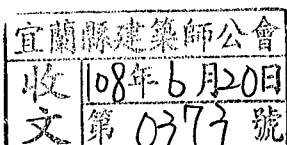 宜蘭縣建築師公會
收文
108年6月20日
第 0373 號